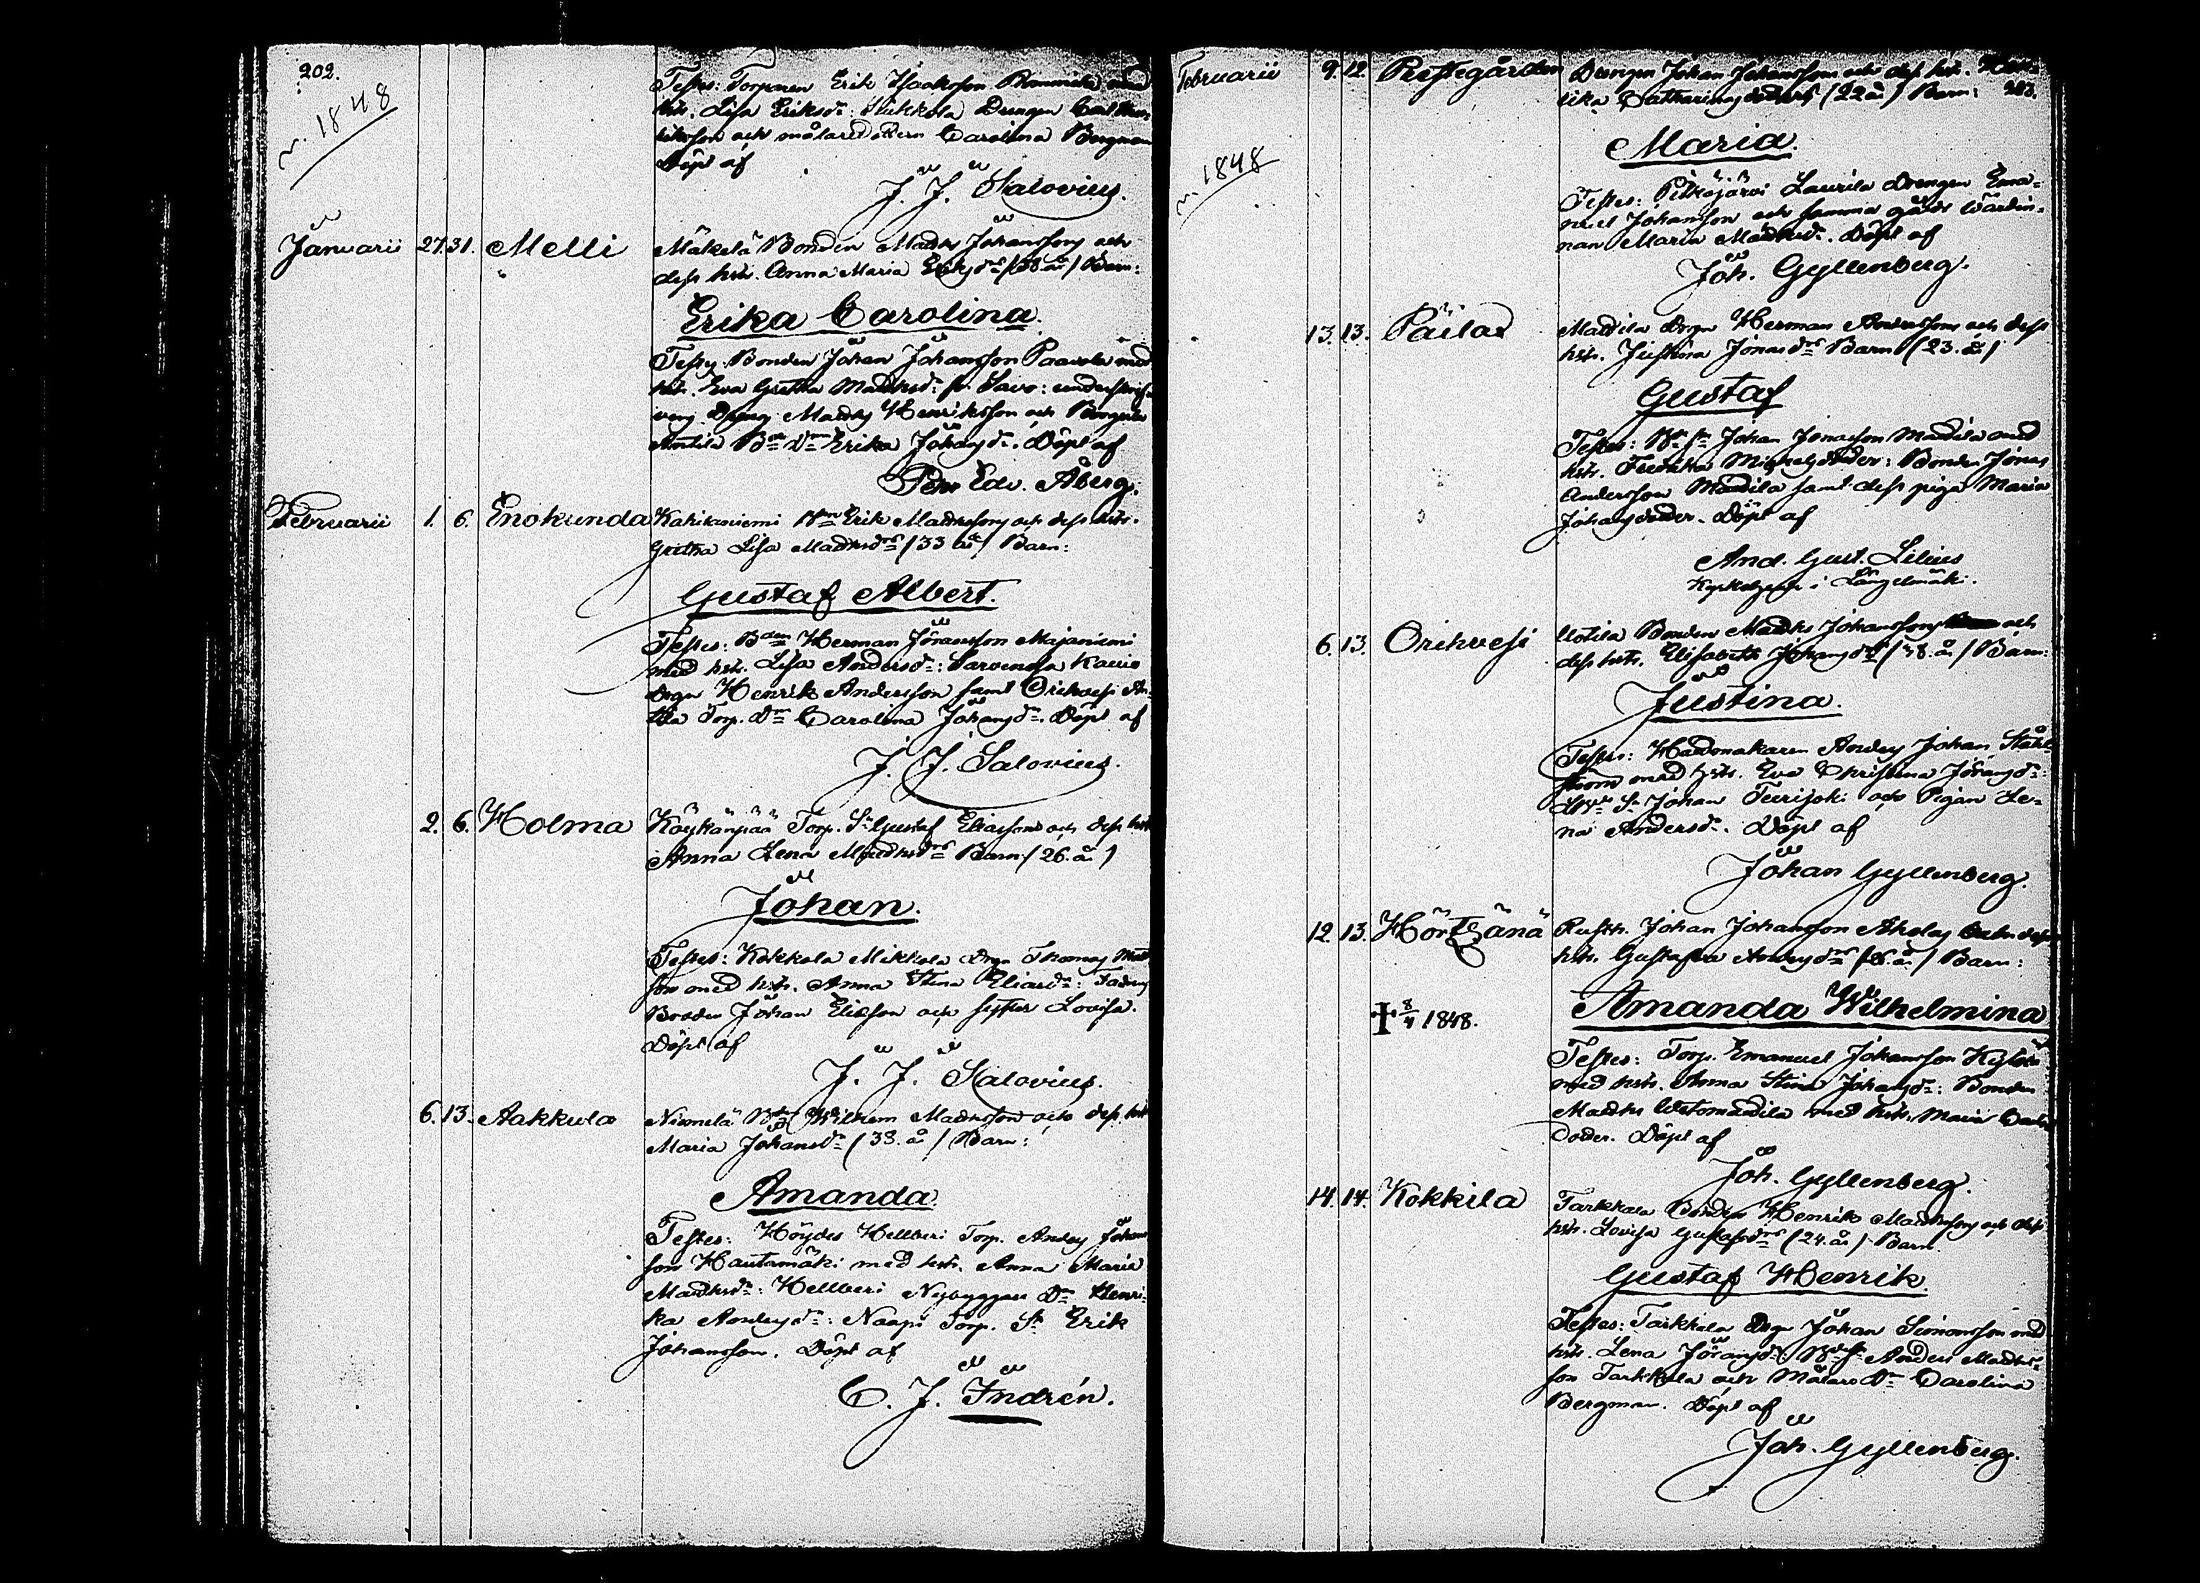 202.
n. 1848
Testes: Torparen Erik Isaaksson med
hst. Lisa Eriksdr: Kukkola Drengen
och målaredottern Carolina Bergman
Döpt af
J. J. Salovius.
Januarii 27. 31. Melli Mäkelä Bonden Matths Johanssons och
dess hst. Anna Maria (38. år) Barn:
Erika Carolina.
Testes: Bonden Johan Johansson Paavola med
hst. Eva Gretha Mattsdr fr. Savo:
Dreng Matths Henriksson och
Anttila Bdn Dr Erika Johansdr. Döpt af
Per Edv. Åberg.
Februarii 1. 6. Enokunda Karikaniemi Bdn Erik Mattssons och dess hst.
Gretha Lisa Mattsdrs (33 år) Barn:
Gustaf Albert.
Testes: Bden Herman Jöransson Majaniemi
med hst. Lisa Andersdr: Sarvenda Kauro
Drgn Henrik Andersson samt Orihvesi An-
tila Torp. Dr Carolina Johansdr. Döpt af
J. J. Salovius.
2. 6. Holma Köykänpää Torp. Sn Gustaf Eliassons och dess hst
Anna Lena Mattsdrs Barn (26. år)
Johan.
Testes: Kokkola Mikkola Drgn Thomas
son med hst. Anna Stina Eliasdr:
Bonden Johan Eliasson och syster Lovisa.
Döpt af
J. J. Salovius.
6. 13. Aakkula Niemelä Wilhem Mattsson och dess hst
Maria Johansdr (38. år) Barn:
Amanda.
Testes: Höydes Hellberi Torp. Anders Johans
son Hautamäki med hst. Anna Maria
Mattsdr: Hellberi Nybyggare Dr Henri-
ka Andersdr: Naapi Torp. Sn Erik
Johansson. Döpt af
C. J. Indrén.
203.
n. 1848
Februarii 9. 12. Prestegården Drengen Johan Johanssons och dess hst. Hen-
rika Catharina (22 år) Barn:
Maria.
Testes: Pitkäjärvi Laurila Drengen Ema-
nuel Johansson och samma gårds Wärdin-
nan Maria Mattsdr. Döpt af
Joh. Gyllenberg.
13. 13. Päilax Mattila Drgn Herman Anderssons och dess
hst. Justina Jonasdrs Barn (23. år)
Gustaf
Testes: Bdn sn Johan Jonasson Mattila med
hst. Fredrika Michelsdoter: Bonden Jonas
Andersson Mattila samt dess piga Maria
Johansdoter. Döpt af
And. Gust. Lilius
i Längelmäki.
6. 13. Orihvesi Uotila Bonden Matths Johanssons och
dess hst. Elisabeth Johansdrs (38. år) Barn:
Justina.
Testes: Anders Johan Ståhl-
ström med hst. Eva Christina Jöransdr:
Sn Johan Teerijoki och Pigan Le-
na Andersdr. Döpt af
Johan Gyllenberg.
12. 13. Hörtsänä Rusth. Johan Johansson Ahola och dess
hst. Gustafva Andersdrs år) Barn:
✝ 8/4 1848.
Amanda Wilhelmina
Testes: Torp. Emanuel Johansson
med hst. Anna Stina Johansdr: Bonden
Matths med hst. Maria
doter. Döpt af
Joh. Gyllenberg.
14. 14. Kokkila Tarkkala Bonden Henrik Mattssons och dess
hst. Lovisa Gustafsdrs (24. år) Barn.
Gustaf Henrik.
Testes: Tarkkala Drgn Johan Simonsson med
hst. Lena Jöransdr: Anders Matts-
son Tarkkala och Målare Dr Carolina
Bergman. Döpt af
Joh. Gyllenberg.